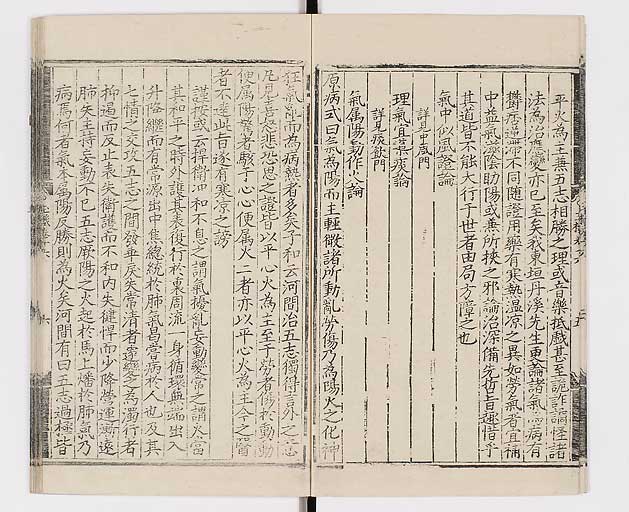 平火為主兼五志相勝之理或音樂抵戲甚至詭詐譎怪諸
法為治應變亦已至矣我東垣丹溪先生更論諸氣病有
鬱痞逼滯不同隨證用藥有寒熱温涼之異如勞氣者宜補
中益氣湯除助陽或無所挾之邪論治深備先哲旨趣惜乎
其道皆不能大行于世者由局方障之也
氣中似風證論
詳見中風門
理氣宜兼痰論
詳見痰飲門
氣属陽動作火論
原病式曰氣為陽而主輕微諸所動亂勞傷乃為陽火之化神
狂氣亂而為病熱者多矣子和云河間治五志獨得言外之意
凡見喜怒悲恐思之證皆以平心火為主至于勞者傷於動動
便属陽驚者駭于心心便属火二者亦以平心火為主今之醫
者不達此旨遂有寒凉之謗
謹按或云捍衛冲和不息之謂氣擾亂妄動變常之謂火當
其和平之時外護其表復行於裏周流一身循環無端出入
升降繼而有常源出中焦總統於肺氣曷嘗病於人也及其
七情之交攻五志之間發乖戾失常清者遽變之為濁行者
抑遏而反止表失衛護而不和内失健悍而少降營運漸遠
肺失主持妄動不已五志厥陽之火起於焉上燔於肺氣乃
病焉何者氣本属陽反勝則為火矣河間有曰五志過極皆